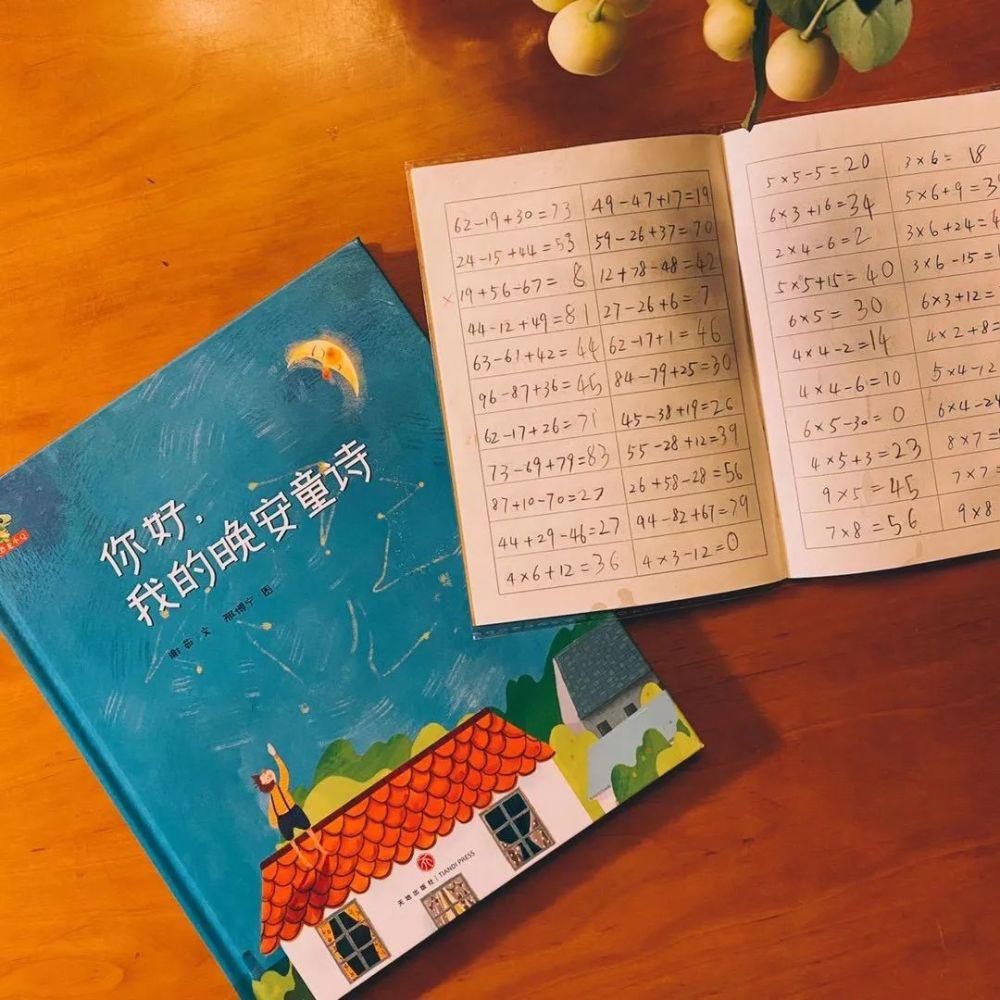 你好，
我的晚安童诗
谢茹 文 邢博宁 图
天地出版社 | TIANDI PRESS
62-19+30=73 49-47+17=19
24-15+44=53 59-26+37=70
×19+56-67=8 12+78-48=42
44-12+49=81 27-26+6=7
63-61+42=44 62-17+1=46
96-87+36=45 84-79+25=30
62-17+26=71 45-38+19=26
73-69+79=83 55-28+12=39
87+10-70=27 26+58-28=56
44+29-46=27 94-82+67=79
4×6+12=36 4×3-12=0
5×5-5=20 3×6=18
6×3+16=34 5×6+9=3
2×4-6=2 3×6+24=4
5×5+15=40 3×6-15=
6×5=30 6×3+12=
4×4-2=14 4×2+8=
4×4-6=10 5×4-12
6×5-30=0 6×4-24
4×5+3=23 8×7=
9×5=45 7×7=
7×8=56 9×8